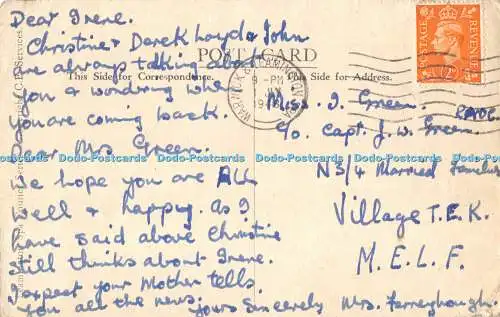 Dear Irene.
Christine & Derek Loyd & John
are always talking about
you & wondring when
you are coming back.
Dear Mrs Green.
we hope you are ALL
well & happy. As I
have said above Christine
still thinks about Irene.
I expect your Mother tells
you all the news.
Yours Sincerely Mrs. Ferneyhough.
POST CARD
This Side for Correspondence.
This Side for Address.
Miss. I. Green.
c/o Capt. J. W. Green
N3/4 Married Families
Village T.E.K.
M.E.L.F.
POSTAGE
REVENUE
LEAMINGTON SPA
WARWICK
9 - PM
Dodo-Postcards Dodo-Postcards Dodo-Postcards Dodo-Postcards Dodo-Postcards